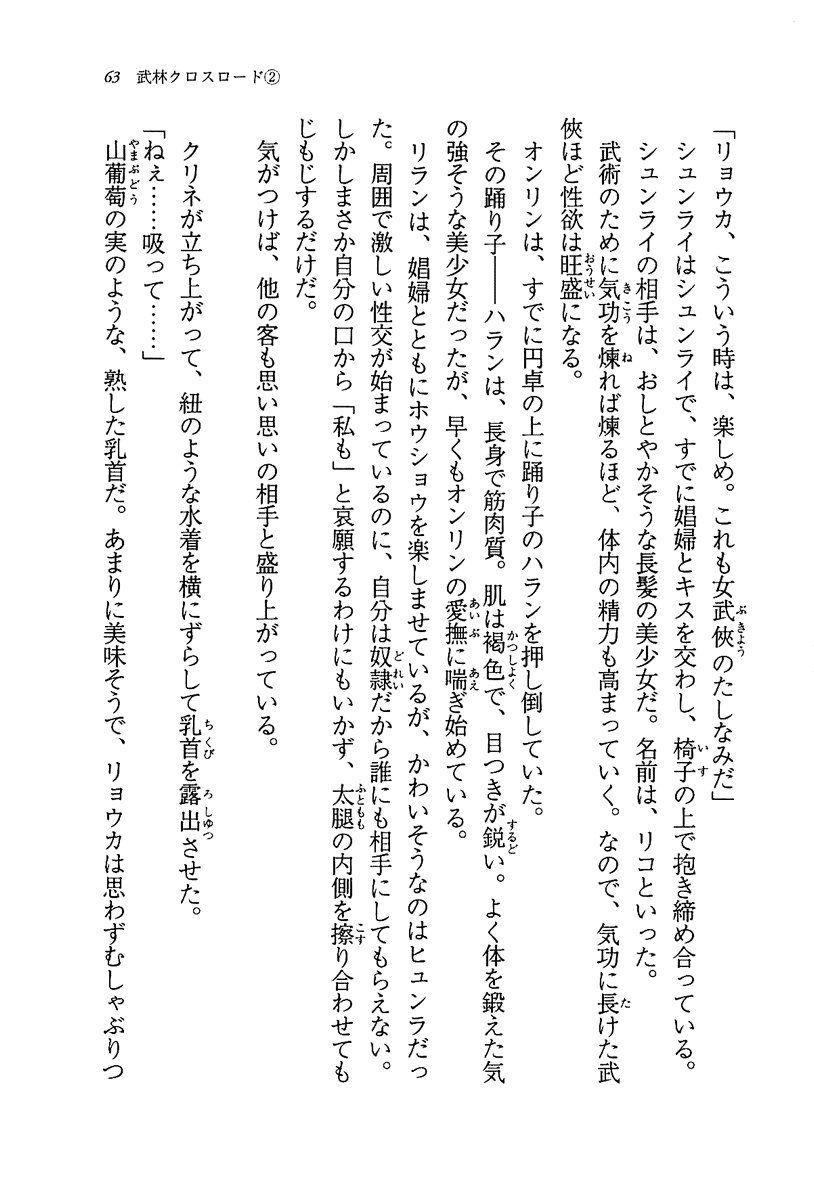 63 武林クロスロード②
「リョウカ、こういう時は、楽しめ。これも女武俠のたしなみだ」
シュンライはシュンライで、すでに娼婦とキスを交わし、椅子の上で抱き締め合っている。
シュンライの相手は、おしとやかそうな長髪の美少女だ。名前は、リコといった。
武術のために気功を煉れば煉るほど、体内の精力も高まっていく。なので、気功に長けた武
俠ほど性欲は旺盛になる。
オンリンは、すでに円卓の上に踊り子のハランを押し倒していた。
その踊り子――ハランは、長身で筋肉質。肌は褐色で、目つきが鋭い。よく体を鍛えた気
の強そうな美少女だったが、早くもオンリンの愛撫に喘ぎ始めている。
リランは、娼婦とともにホウショウを楽しませているが、かわいそうなのはヒュンラだっ
た。周囲で激しい性交が始まっているのに、自分は奴隷だから誰にも相手にしてもらえない。
しかしまさか自分の口から「私も」と哀願するわけにもいかず、太腿の内側を擦り合わせても
じもじするだけだ。
気がつけば、他の客も思い思いの相手と盛り上がっている。
クリネが立ち上がって、紐のような水着を横にずらして乳首を露出させた。
「ねぇ……吸って……」
山葡萄の実のような、熟した乳首だ。あまりに美味そうで、リョウカは思わずむしゃぶりつ